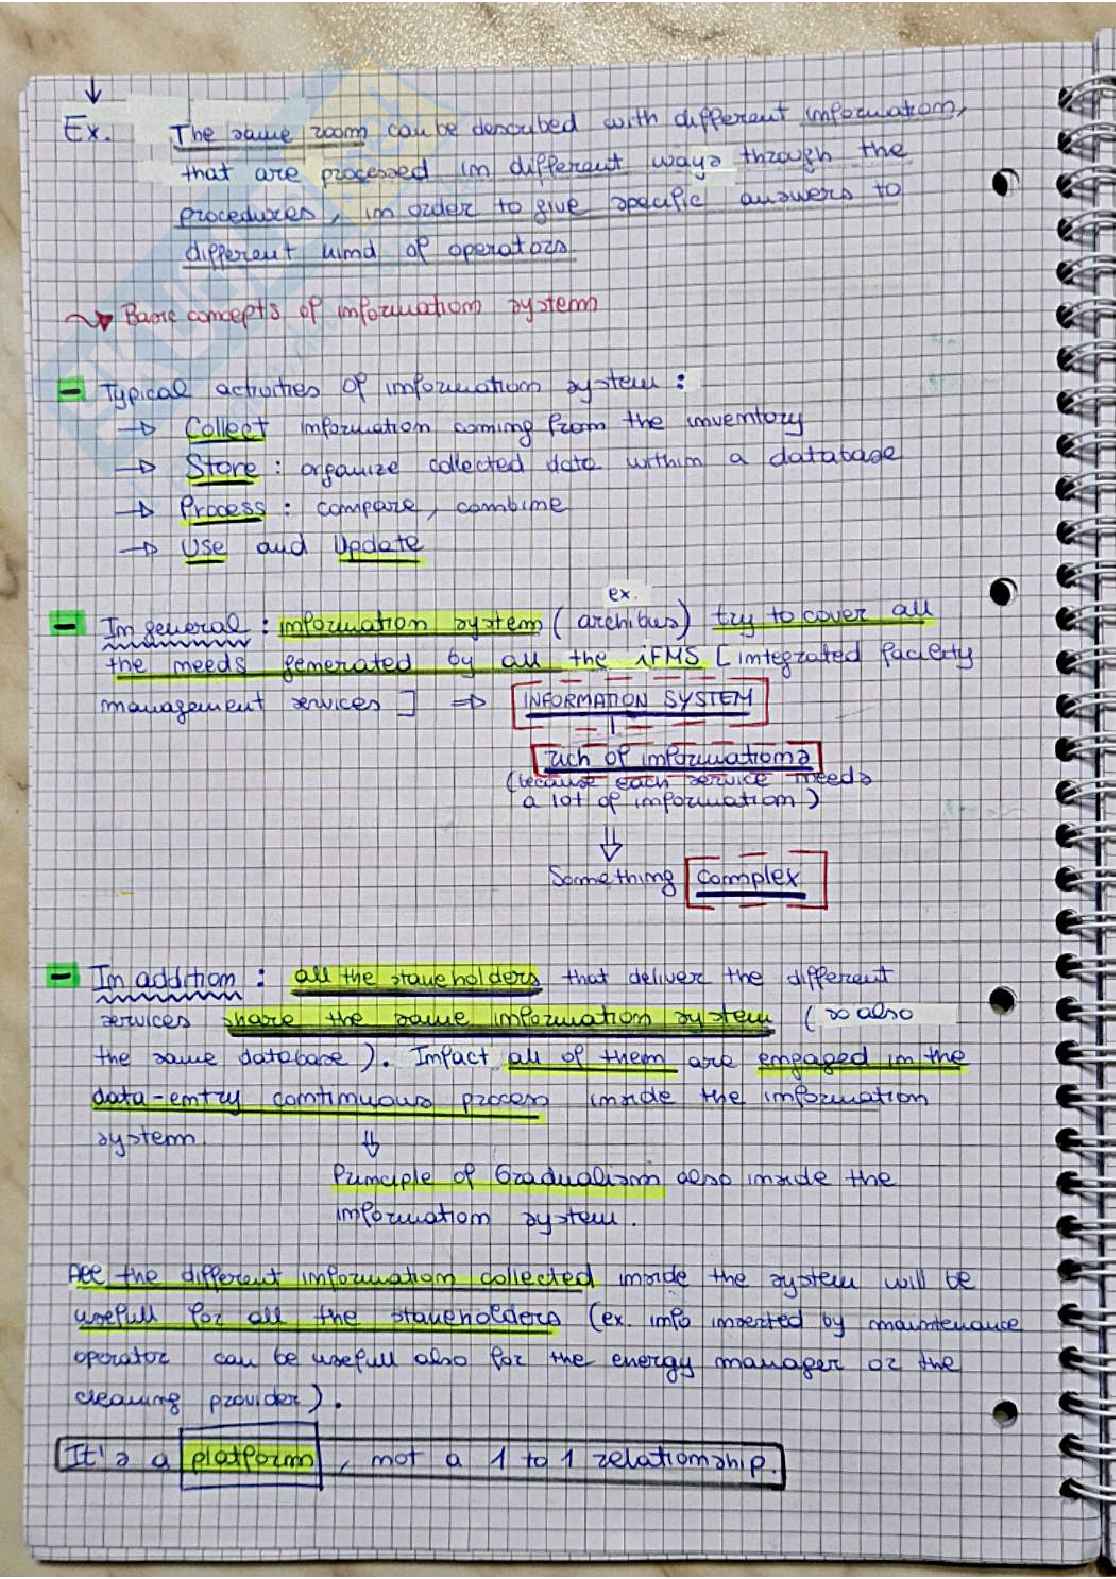 Ex. The same room can be described with different information,
that are processed in different ways through the
procedures, in order to give specific answers to
different kind of operators
Basic concepts of information system
- Typical activities of information system :
→ Collect information coming from the inventory
→ Store : organize collected data within a database
→ Process : compare, combine
→ Use and Update
ex.
- In general : information system ( archibus) try to cover all
the needs generated by all the iFMS [ integrated facility
management services ] ⇒ INFORMATION SYSTEM
rich of informations
(because each service needs
a lot of information )
Something complex
- In addition : all the stakeholders that deliver the different
services share the same information system ( so also
the same database ). Infact all of them are engaged in the
data-entry continuous process inside the information
system
Principle of Gradualism also inside the
information system.
All the different information collected inside the system will be
usefull for all the stakeholders (ex. info inserted by maintenance
operator can be usefull also for the energy manager or the
cleaning provider ).
It's a platform, not a 1 to 1 relationship.